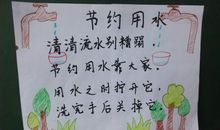 节约用水
清清流水别糟蹋，
节约用水靠大家，
用水之时拧开它，
洗完手后关掉它。